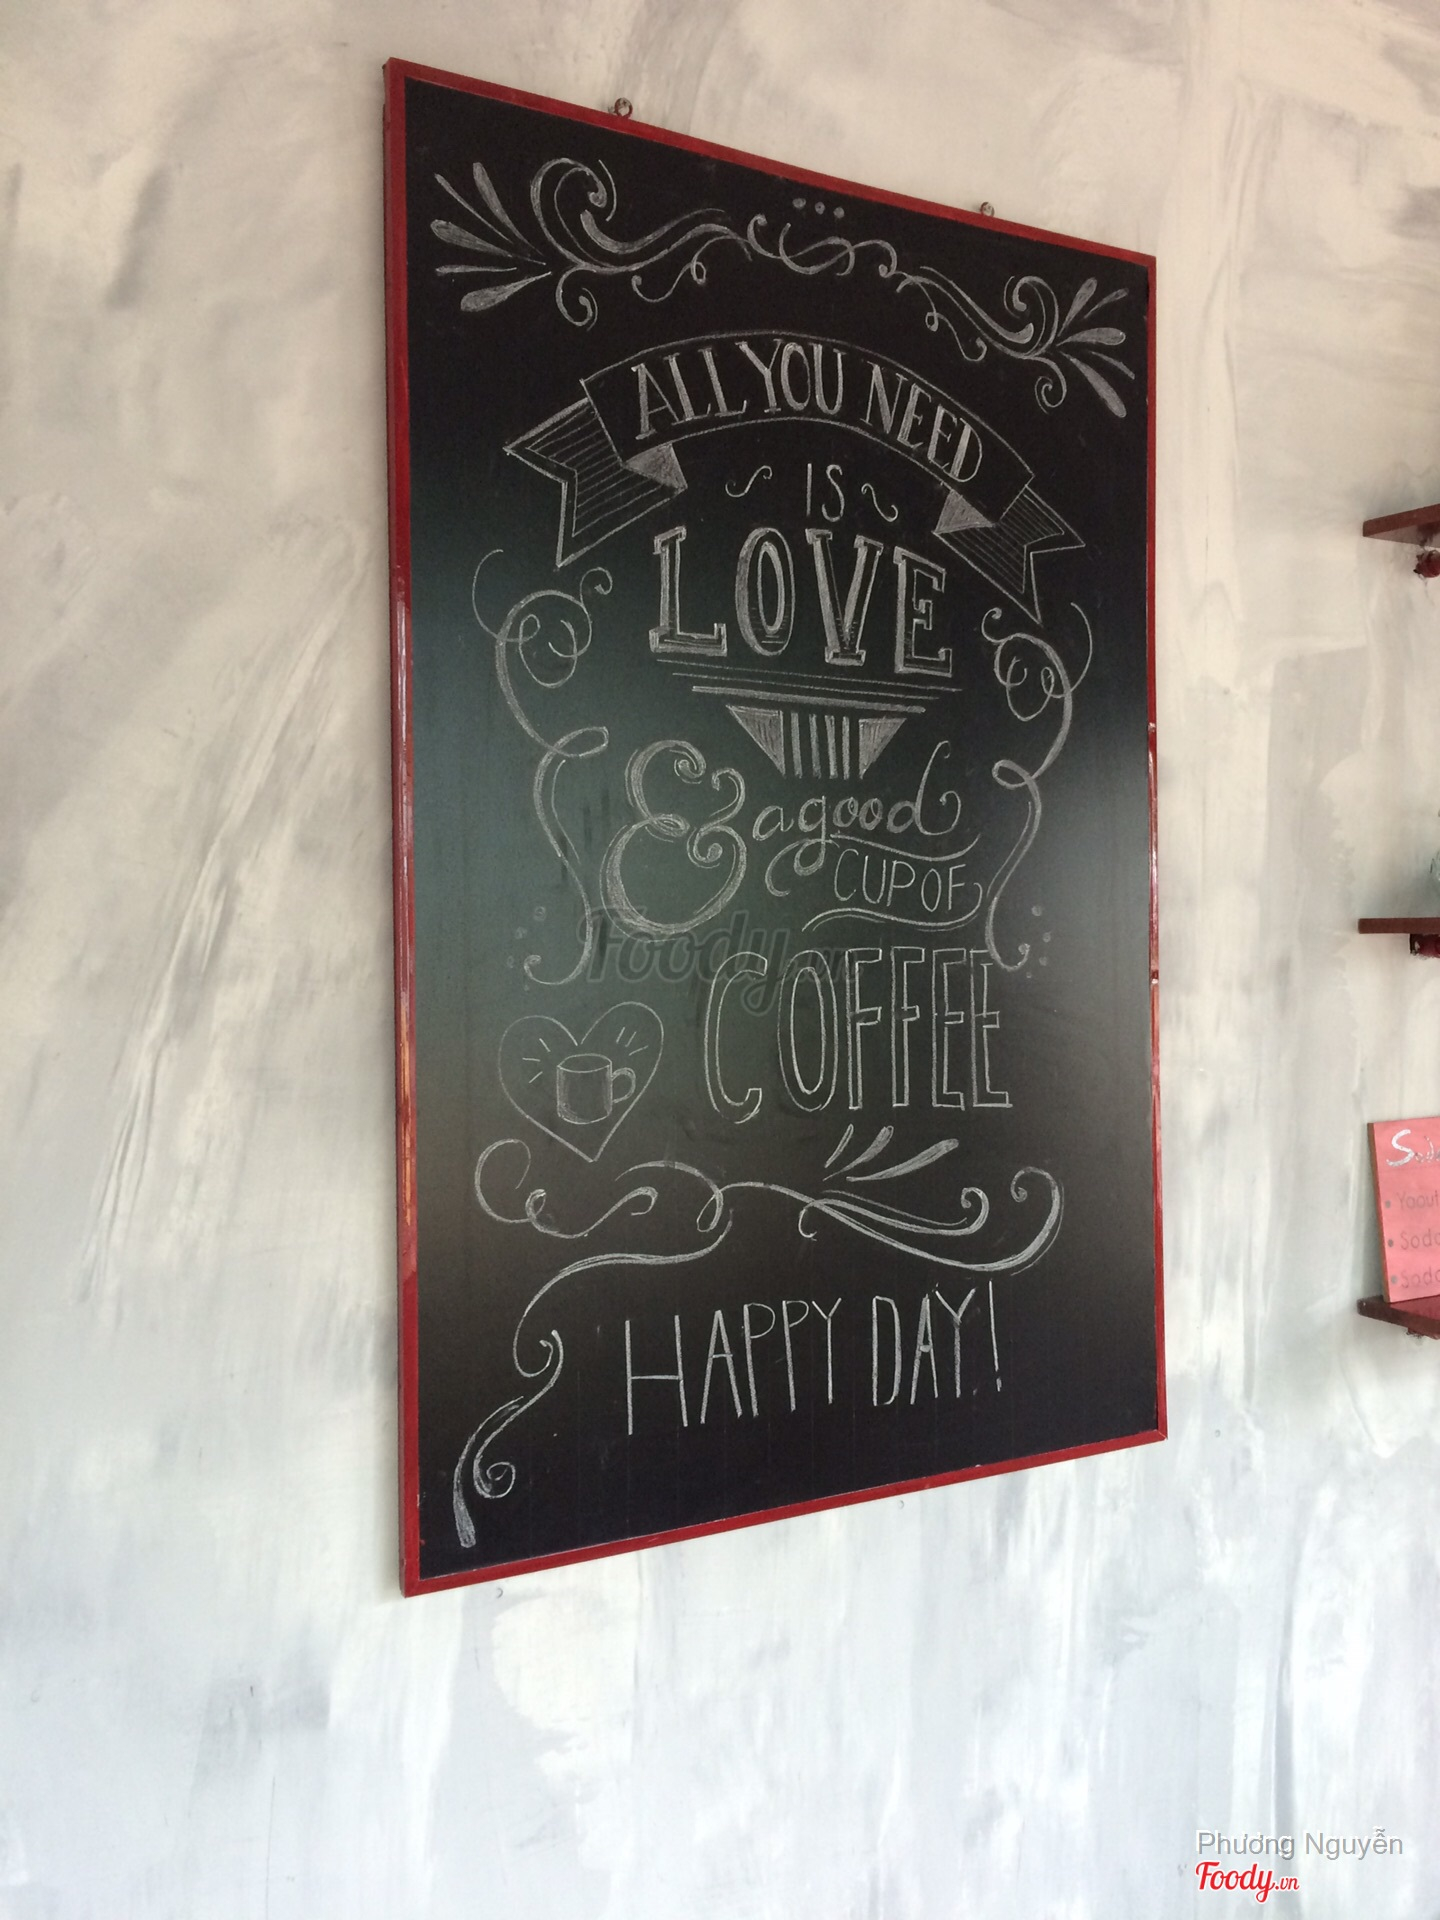 ALL YOU NEED
IS
LOVE
& a good
CUP OF
COFFEE
HAPPY DAY!
Foody.vn
Phương Nguyễn
Foody.vn